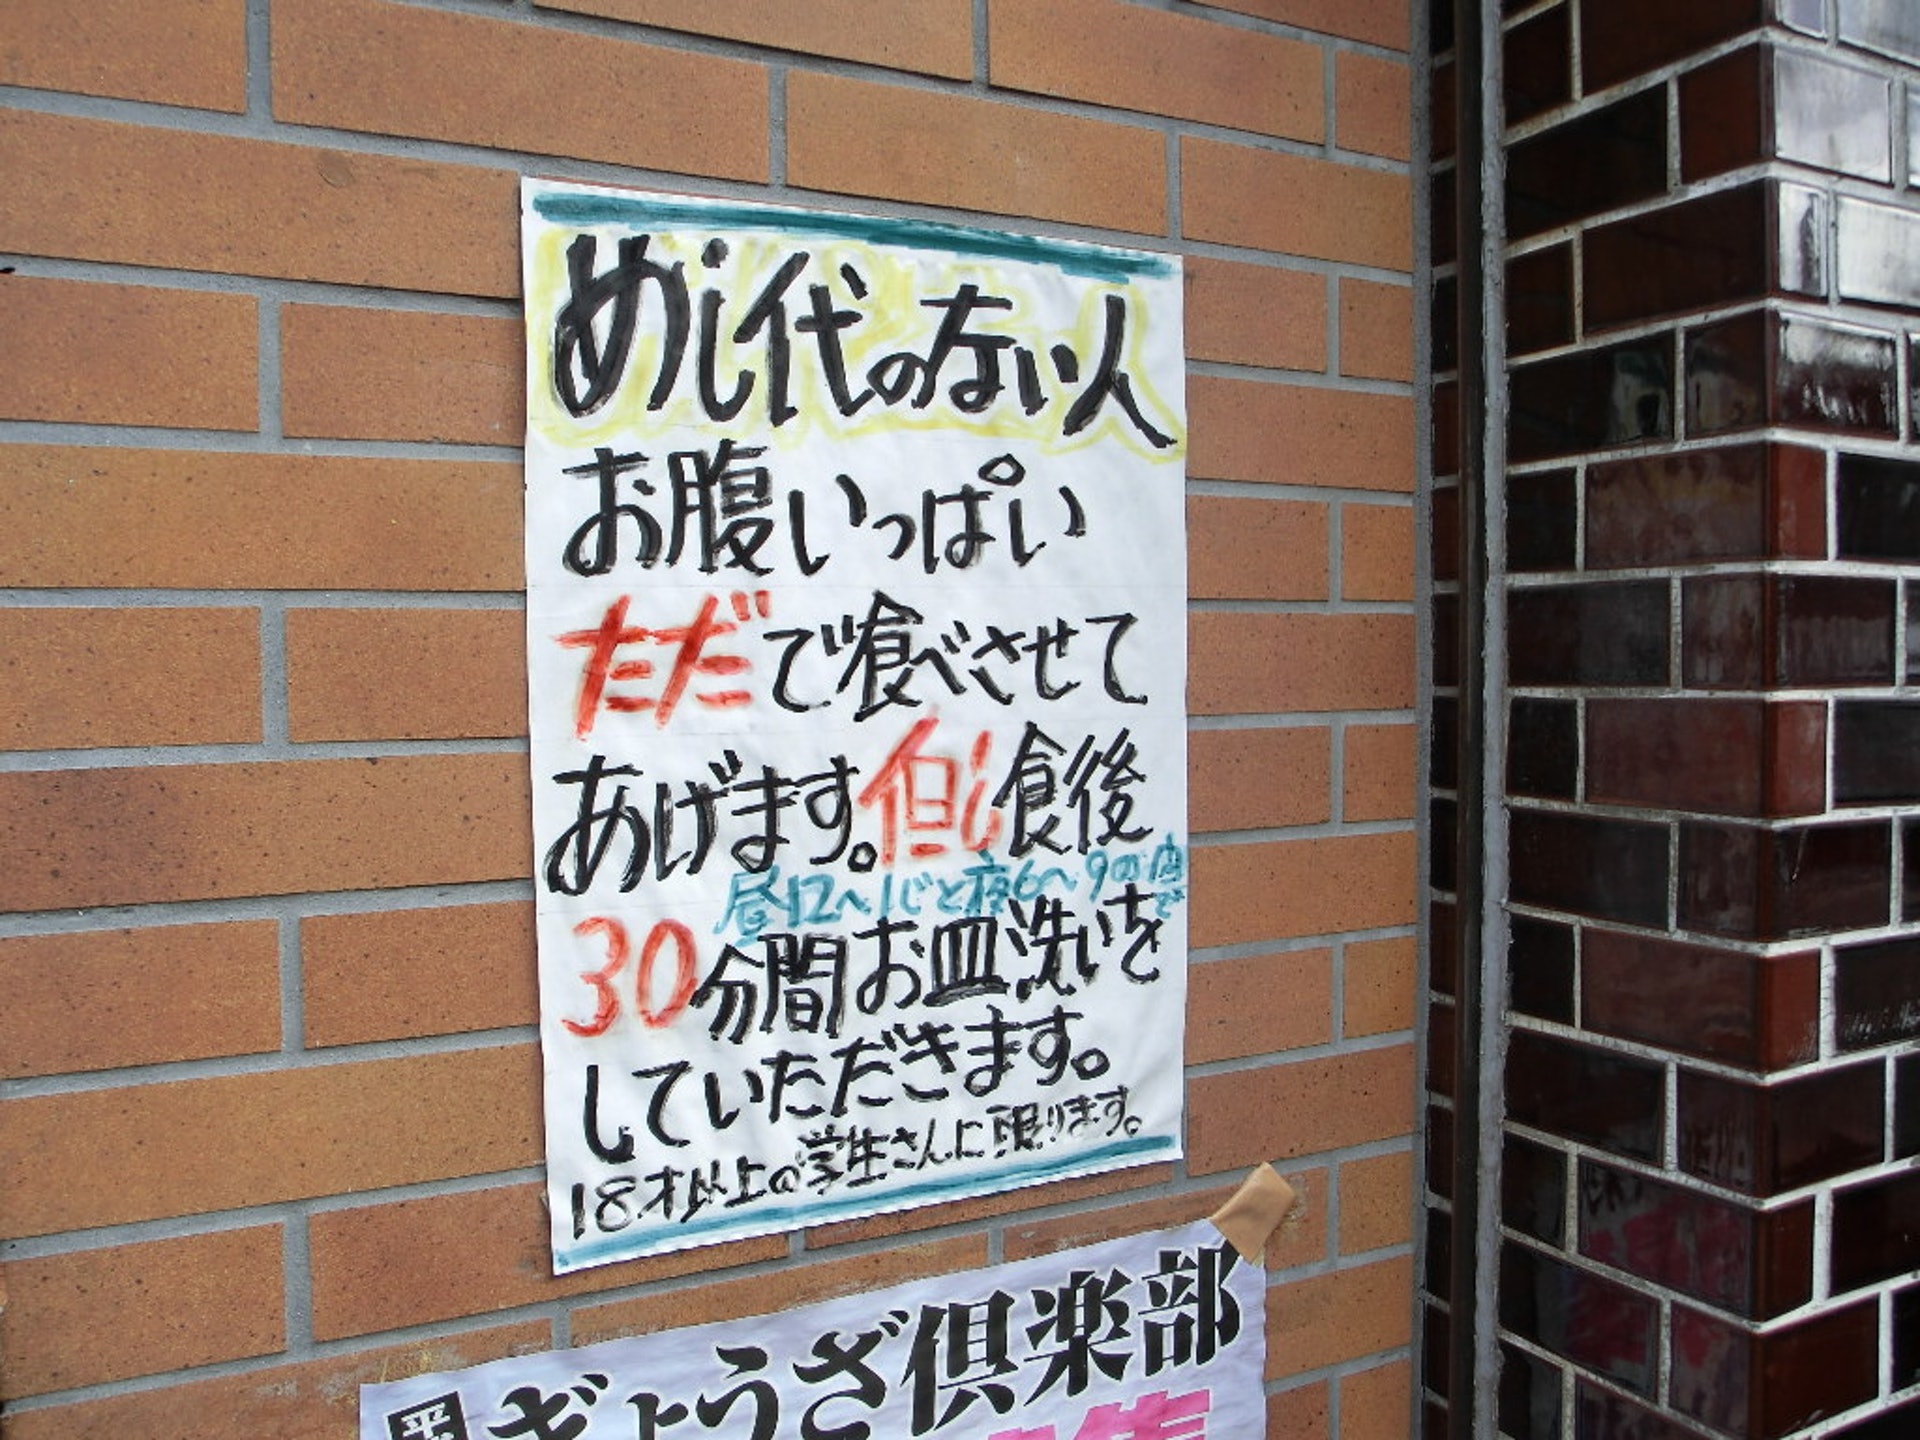 めし代のない人
お腹いっぱい
ただで食べさせて
あげます。但し食後
昼12〜1じと夜6〜9の間で
30分間お皿洗いを
していただきます。
18才以上の学生さんに限ります。
ぎょうざ倶楽部